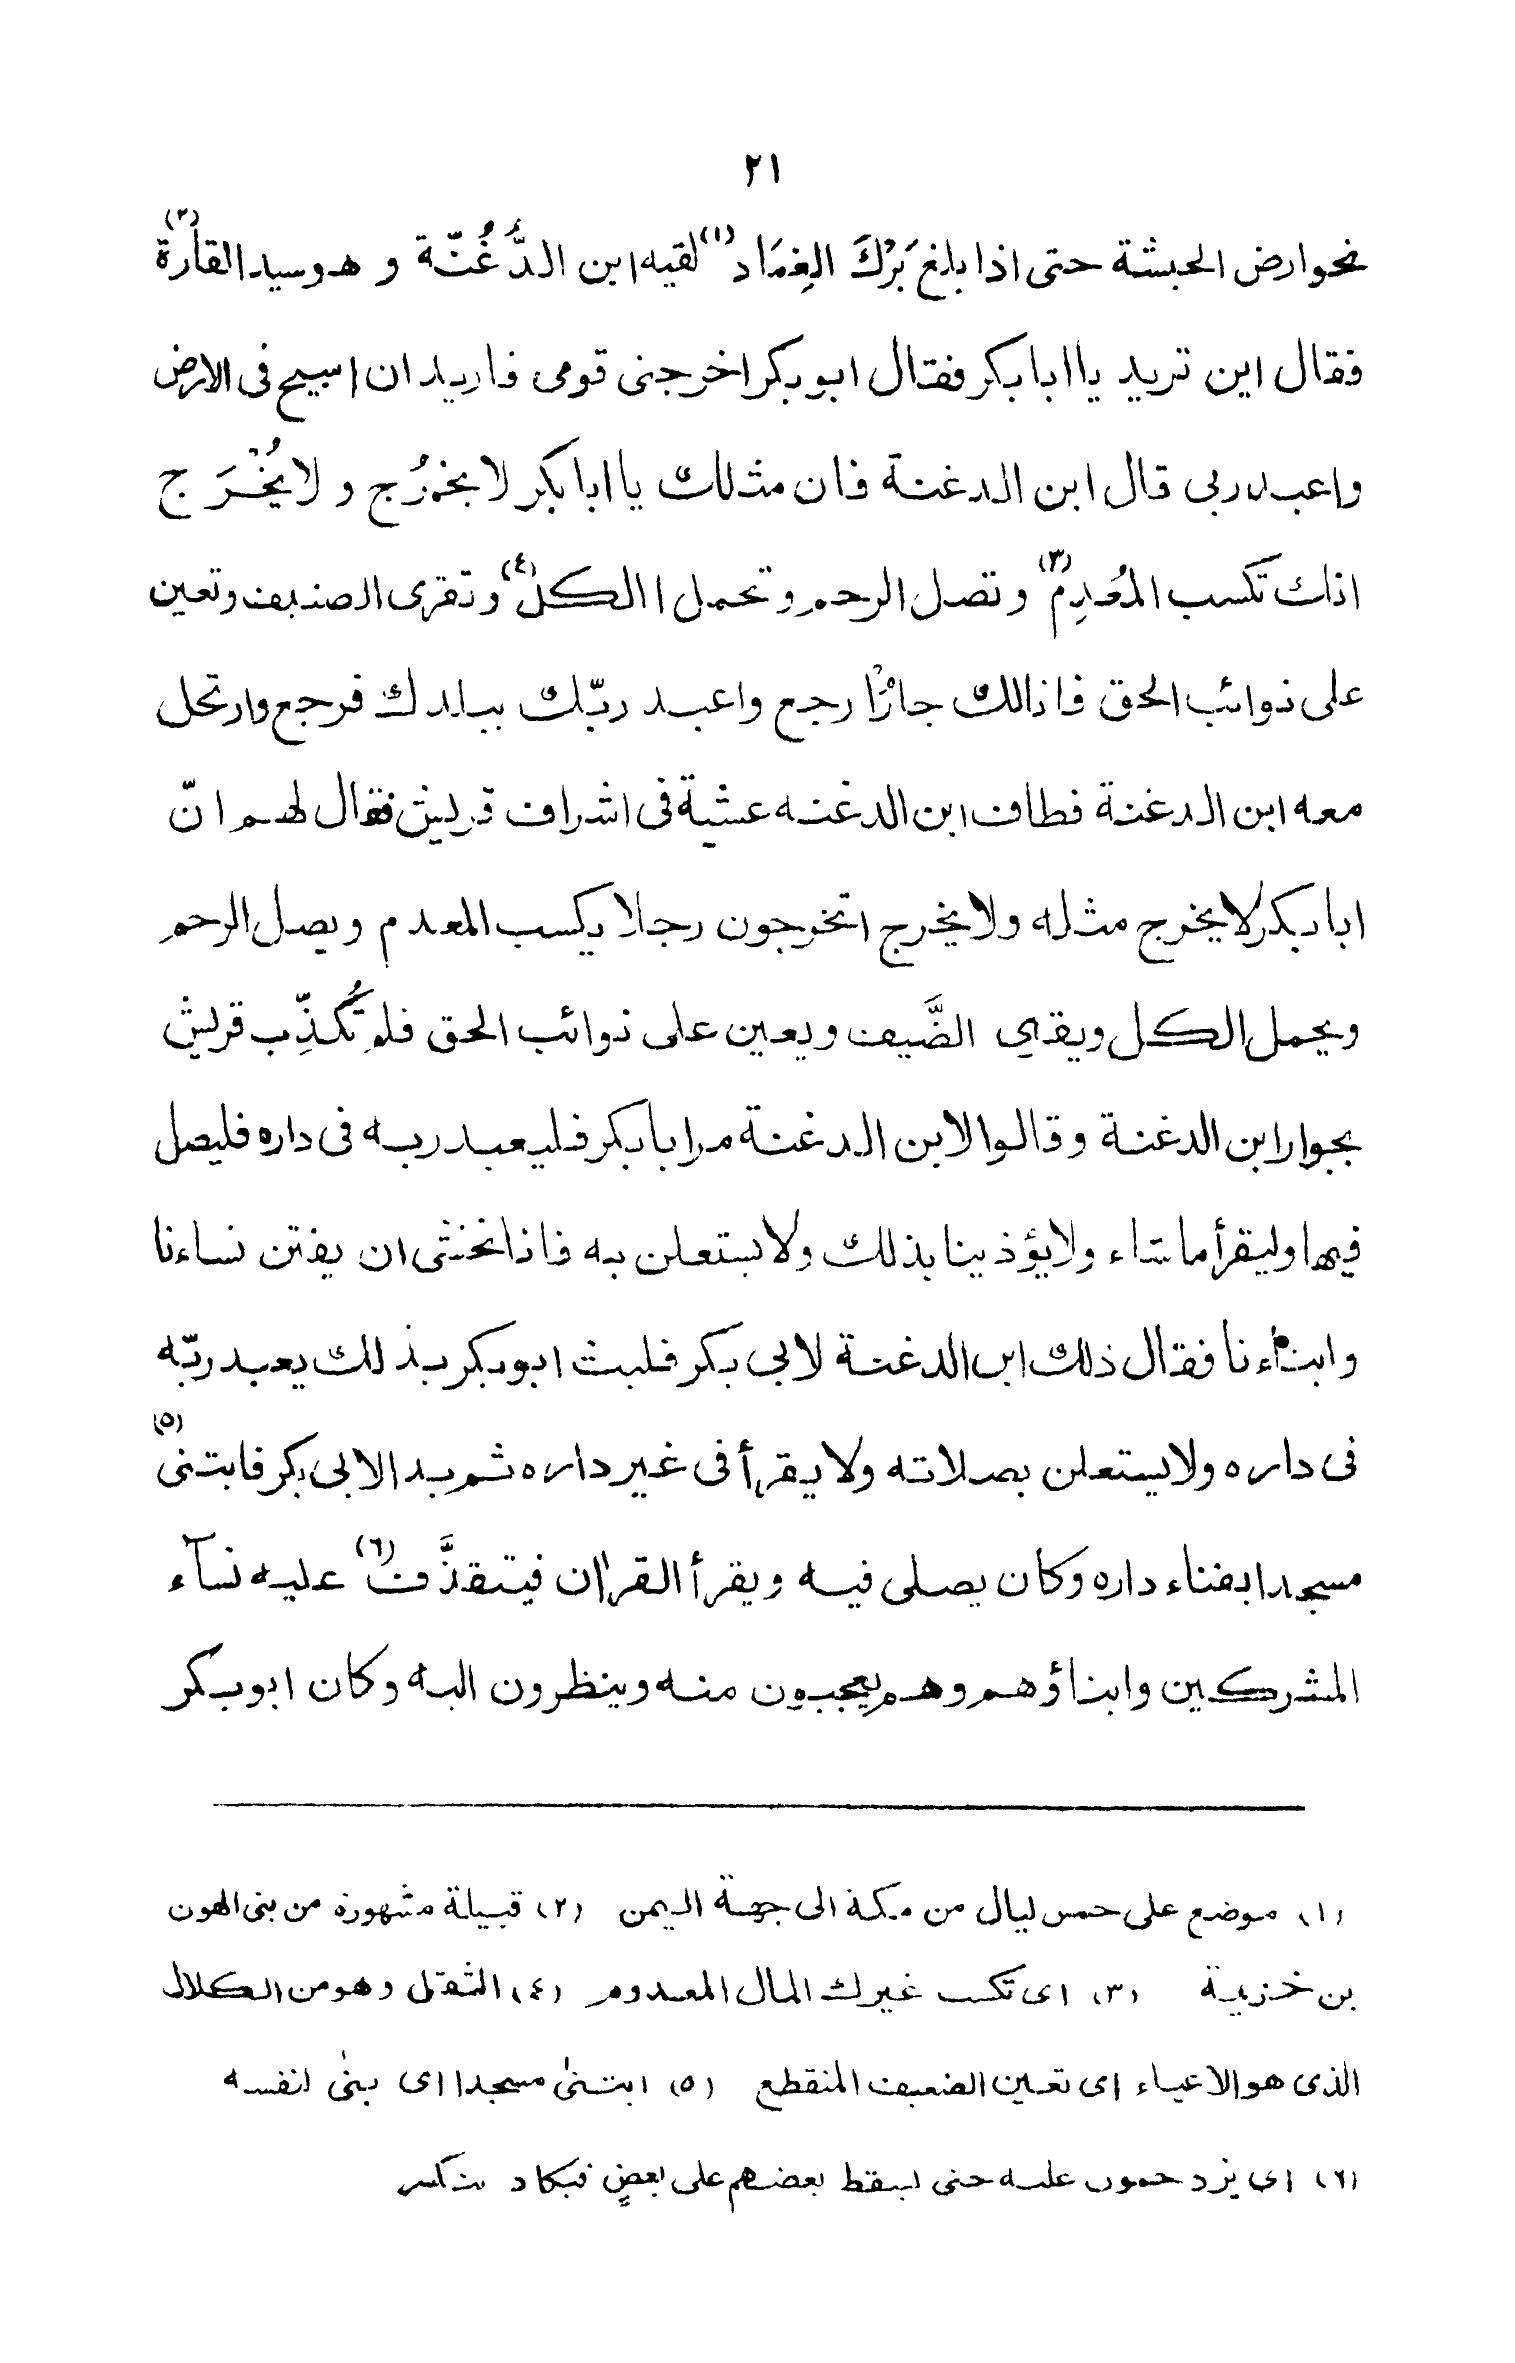 ٢١
نحوارض الحبشة حتى اذا بلغ بَرْكَ الغِمَاد (١) لقيه ابن الدُّغُنّة و هو سيد القارة (٢)
فقال اين تريد يا ابا بكر فقال ابو بكر اخرجنى قومى فاريد ان اسيح فى الارض
واعبد ربى قال ابن الدغنة فان مثلك يا ابا بكر لا يخرُج و لا يُخْرَج
انك تكسب المُعدِم (٣) وتصل الرحم وتحمل الكل (٤) وتقرى الضيف وتعين
على نوائب الحق فانالك جارٌ ارجع واعبد ربّك ببلدك فرجع وارتحل
معه ابن الدغنة فطاف ابن الدغنه عشية فى اشراف قريش فقال لهم انّ
ابا بكر لا يخرج مثله ولا يخرج اتخرجون رجلا يكسب المعدم ويصل الرحم
ويحمل الكل ويقرى الضَّيف ويعين على نوائب الحق فلم تُكَذِّب قريش
بجوار ابن الدغنة وقالوا لابن الدغنة مر ابا بكر فليعبد ربه فى داره فليصل
فيها وليقرأ ما شاء ولا يؤذينا بذلك ولا يستعلن به فانا نخشى ان يفتن نساءنا
وابناءنا فقال ذلك ابن الدغنة لابى بكر فلبث ابو بكر بذلك يعبد ربّه
فى داره ولا يستعلن بصلاته ولا يقرأ فى غير داره ثم بدا لابى بكر فابتنى (٥)
مسجدا بفناء داره وكان يصلى فيه ويقرأ القرآن فيتقذَّف (٦) عليه نسآء
المشركين وابناؤهم وهم يعجبون منه وينظرون اليه وكان ابو بكر
(١) موضع على خمس ليال من مكة الى جهة اليمن (٢) قبيلة مشهورة من بنى الهون
بن خزيمة (٣) اى تكسب غيرك المال المعدوم (٤) الثقل وهو من الكلال
الذى هو الاعياء اى تعين الضعيف المنقطع (٥) ابتنىٰ مسجدا اى بنىٰ لنفسه
(٦) اى يزدحمون عليه حتى يسقط بعضهم على بعضٍ فيكاد ينكسر